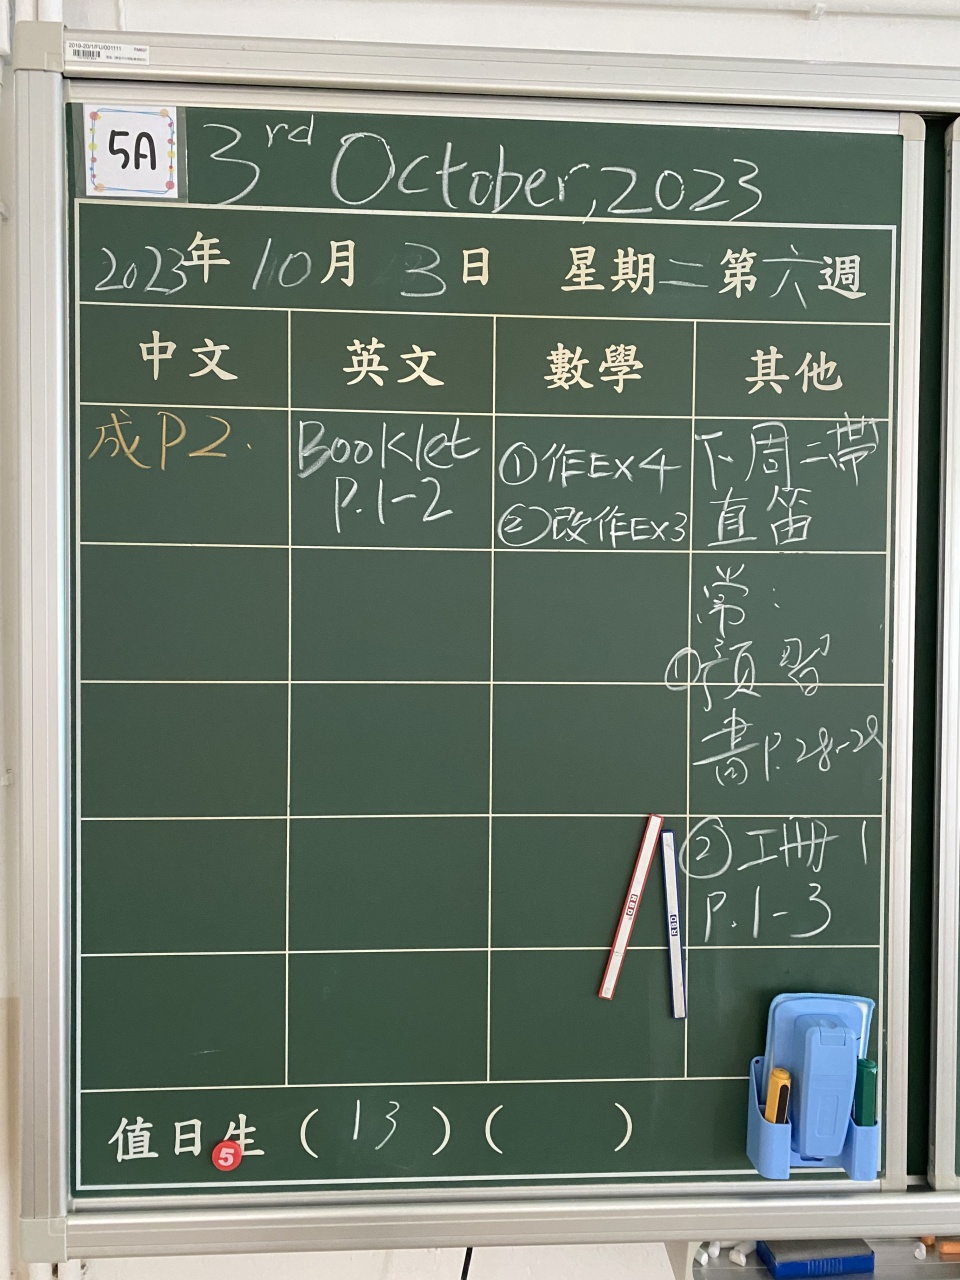 2019-20/1/FU/001111
5A
3rd October, 2023
2023年 10月 3日 星期二 第六週
中文 英文 數學 其他
成P2.
Booklet
P.1-2
①作EX4
②改作EX3
下周二帶
直笛
常:
①預習
書P.28-29
②工冊1
P.1-3
RBD
RBD
值日生 ( 13 ) ( )
5